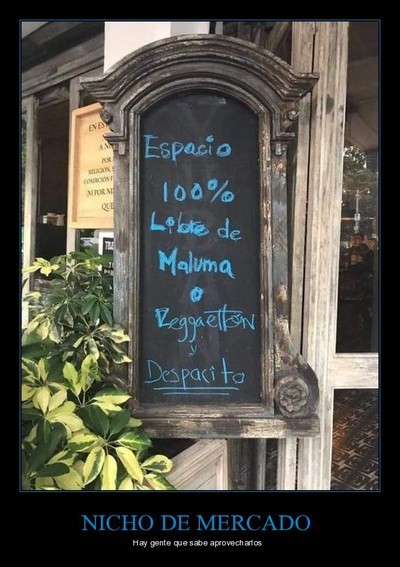 EN ES
A N
POR
RELIGIÓN,
CONDICIÓN F
NI POR NI
QUE
Espacio
100%
Libre de
Maluma
o
Reggaetton
y
Despacito
NICHO DE MERCADO
Hay gente que sabe aprovecharlos